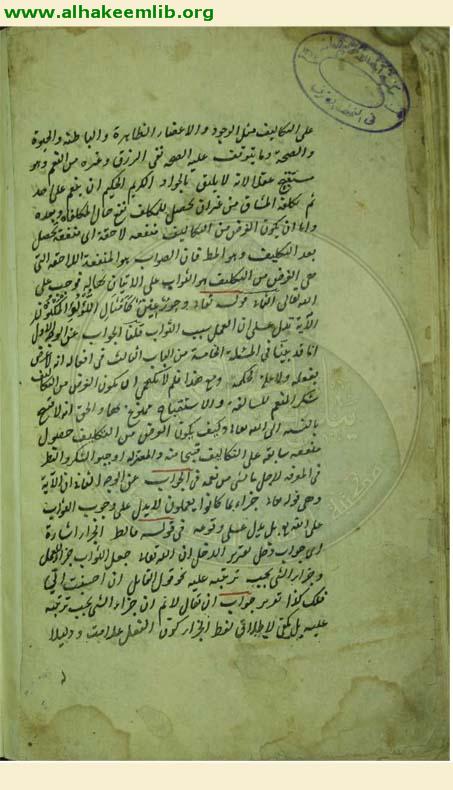 www.alhakeemlib.org
على التكاليف مثل الوجود والاعضاء الظاهرة والباطنة والحيوة
والصحة وما يتوقف عليه الصحة ففى الرزق وغيره من النعم وهو
مستقبح عقلا لانه لا يليق بالجواد الكريم الحكيم ان ينعم على احد
ثم يكلفه المشاق من غير ان يحصل للمكلف نفع حال التكليف او بعده
واما ان يكون الغرض من التكاليف منفعة لاحقة اى منفعة تحصل
بعد التكليف وهو المط فان الصواب هو المنفعة اللاحقة التى
هى الغرض من التكليف هو الثواب على الاتيان
قوله تعا وحور عين كامثال اللؤلؤ المكنون
الآية تدل على ان العمل سبب الثواب قلنا الجواب عن
انا قد بينا فى المسئلة الخامسة من الباب الثالث فى افعاله
بفعله ولا على الحكمة ومع هذا فلم لا يكفى ان يكون الغرض من التكاليف
شكر المنعم السالفة والاستقباح ممنوع
بالنسبة الى الله تعا وكيف يكون الغرض من التكليف حصول
منفعة سابقة على التكاليف قبيحا منه والمعتزلة اوجبوا الشكر والنظر
فى المعرفة لاجل ما سبق من نعمه فى الجواب عن الوجه الثانى ان الآية
وهى قوله تعا جزاء بما كانوا يعملون لا يدل على وجوب الثواب
على الله بل يدل على وقوعه فى قوله ما لفظ الجزاء اشارة
الى جواب دخل تقرير الدخل ان الله تعا جعل الثواب جزاء للعمل
وجزاء الشئ يجب ترتبه عليه نحو قول القائل ان احسنت الى
فلك كذا تقرير جواب ان يقال لا نم ان جزاء الشئ يجب ترتبه
عليه بل يكفى لاطلاق لفظ الجزاء كون الفعل علامة ودليلا